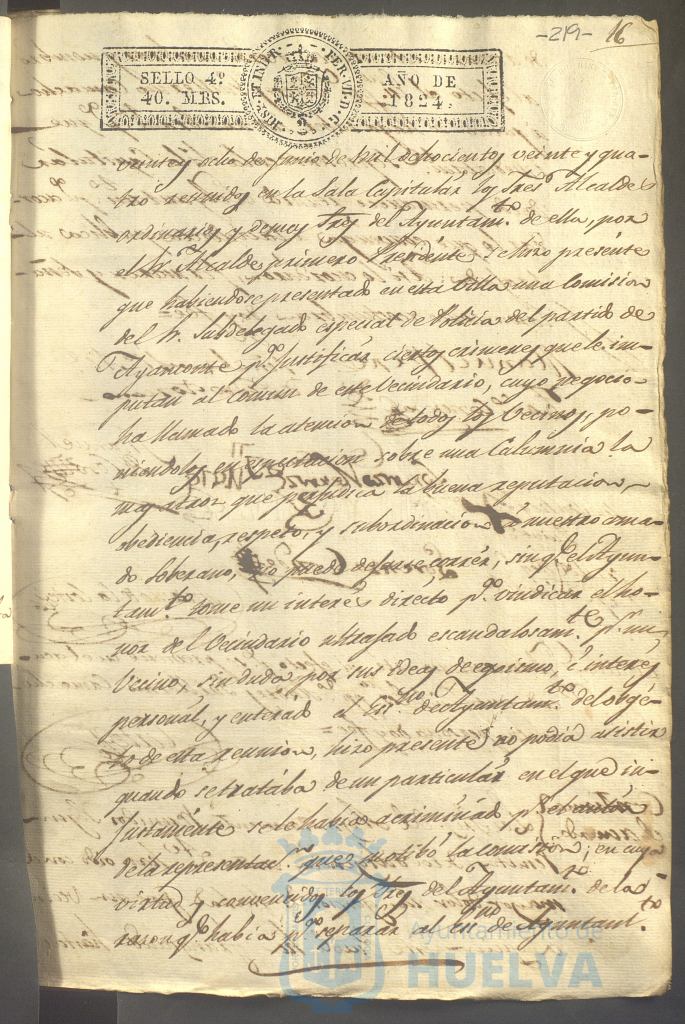 -219- 16
HISP. ET IND. R. FER. VII. D. G.
SELLO 4º AÑO DE
40. MRS. 1824.
veinte y ocho de Junio de Mil ochocientos veinte y qua-
tro reunidos en la Sala Capitular los Sres. Alcaldes
ordinarios y demas Sres. del Ayuntam.to de ella, por
el Sr. Alcalde primero Presidente se hizo presente
que habiendose presentado en esta Villa una Comision
del Sr. Subdelegado especial de Policia del partido de
Ayamonte p.a justificar ciertos crimenes que le im-
putan al comun de este Vecindario, cuyo negocio
ha llamado la atencion de todos los Vecinos, po-
niendolos en sobre una Calumnia la
mas atroz que perjudica la buena reputacion,
obediencia, respeto, y subordinacion á nuestro ama-
do Soberano, no puede dejarse correr, sin q.e el Ayun-
tam.to tome un interés directo p.a vindicar el ho-
nor del Vecindario ultrajado escandalosam.te p.r un
Vecino, sin duda por sus ideas de egoismo, é interes
personal, y enterado el de Ayuntam.to del obgé-
to de esta reunion, hizo presente no podia asistir
quando se tratába de un particular en el que in-
justamente se le habia acriminado p.r
de la representac.n que motibó la comision; en cuya
virtud y convencidos los Sres. del Ayuntam.to de la
razon q.e habia p.a separar al de Ayuntam.to
Ayuntamiento de
HUELVA